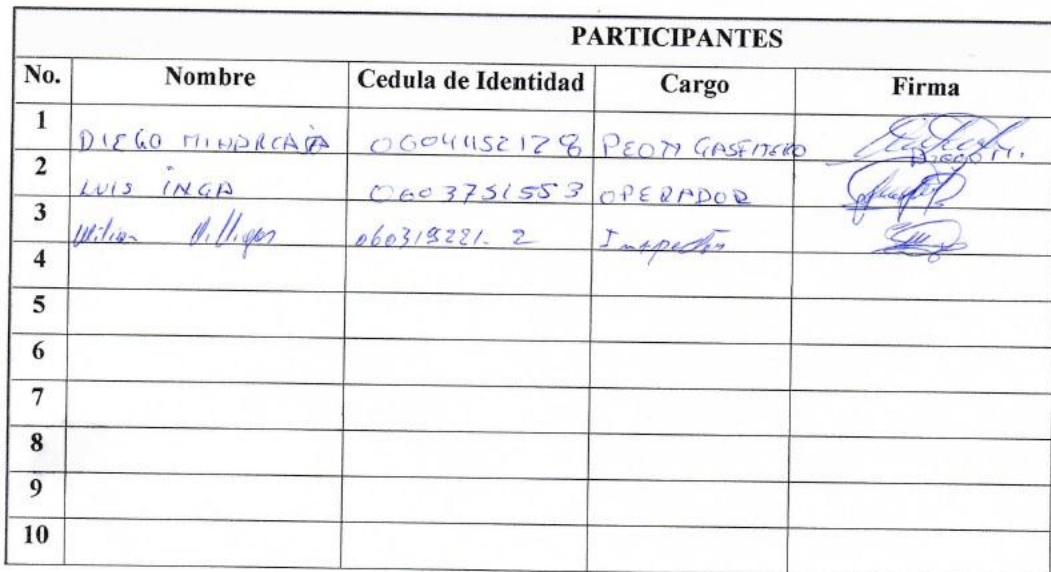 PARTICIPANTES
No. Nombre Cedula de Identidad Cargo Firma
1 DIEGO 06041152178 PEON GASFITERO DIEGO M.
2 LUIS INGA 0603751553 OPERADOR
3 Wilian Villigas 060319221-2 Inspector
4
5
6
7
8
9
10